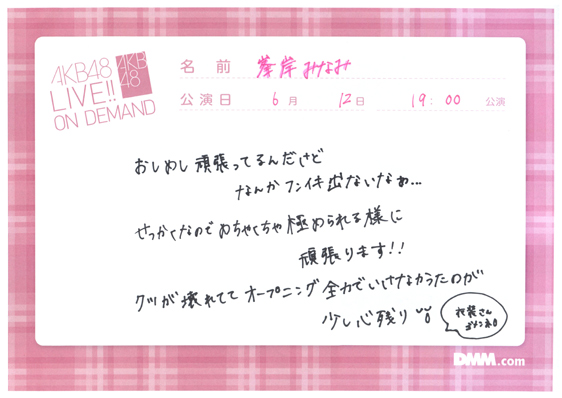 AKB48
LIVE!!
ON DEMAND
AKB
48
名前 峯岸みなみ
公演日 6月 12日 19:00 公演
おしめし頑張ってるんだけど
なんかフンイキ出ないなぁ...
せっかくなのでめちゃくちゃ極められる様に
頑張ります!!
クツが壊れててオープニング全力でいけなかったのが
少し心残り
衣装さん
ゴメンネ
DMM.com